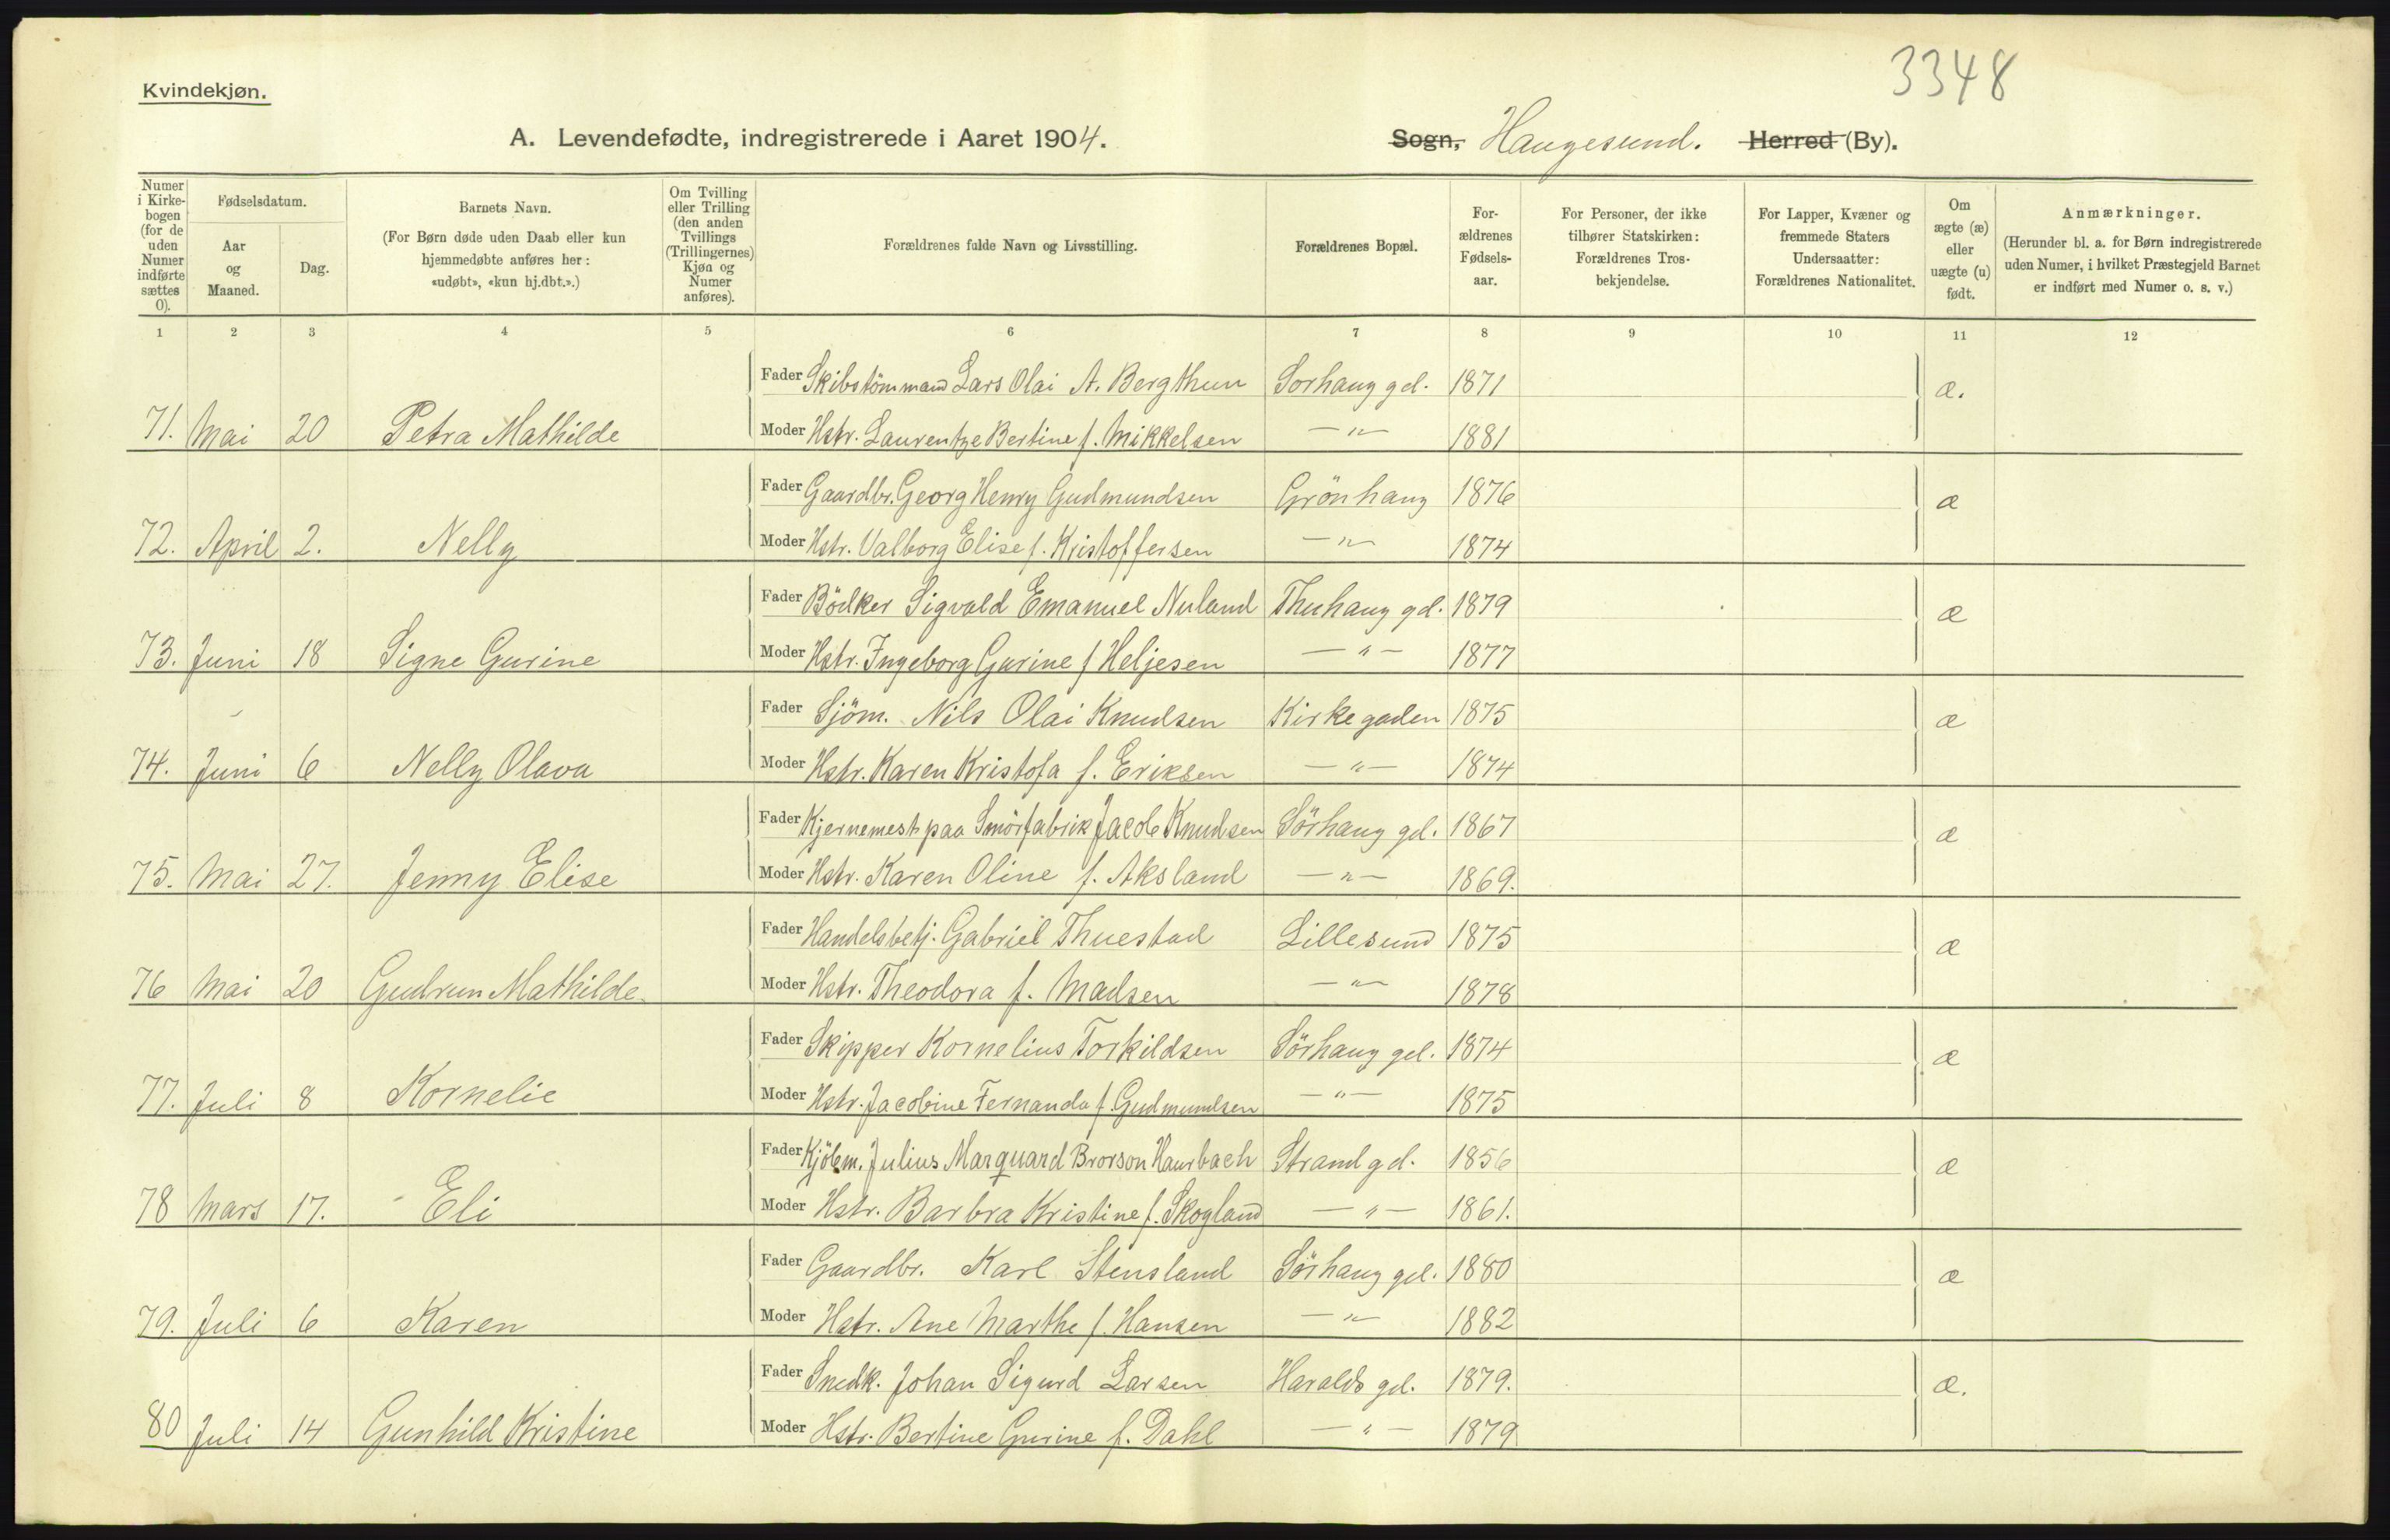 3348
Kvindekjøn.
A. Levendefødte, indregistrerede i Aaret 1904. Sogn, Haugesund. Herred (By).
Numer i Kirkebogen (for de uden Numer indførte sættes 0).
Fødselsdatum.
Aar og Maaned.
Dag.
Barnets Navn.
(For Børn døde uden Daab eller kun hjemmedøbte anføres her: «udøbt», «kun hj.dbt.».)
Om Tvilling eller Trilling (den anden Tvillings (Trillingernes) Kjøn og Numer anføres).
Forældrenes fulde Navn og Livsstilling.
Forældrenes Bopæl.
Forældrenes Fødselsaar.
For Personer, der ikke tilhører Statskirken: Forældrenes Trosbekjendelse.
For Lapper, Kvæner og fremmede Staters Undersaatter: Forældrenes Nationalitet.
Om ægte (æ) eller uægte (u) født.
Anmærkninger.
(Herunder bl. a. for Børn indregistrerede uden Numer, i hvilket Præstegjeld Barnet er indført med Numer o. s. v.)
1 2 3 4 5 6 7 8 9 10 11 12
Fader Skibstömmand Lars Olai A. Bergthun Sorhaug gd. 1871 æ.
71. Mai 20 Petra Mathilde Moder Hstr. Laurentze Bertine f. Mikkelsen — " — 1881
Fader Gaardbr. Georg Henry Gudmundsen Grönhaug 1876 æ
72. April 2. Nelly Moder Hstr. Valborg Elise f. Kristoffersen — " — 1874
Fader Bödker Sigvald Emanuel Nuland Thuhaug gd. 1879 æ
73. Juni 18 Signe Gurine Moder Hstr. Ingeborg Gurine f Heljesen — " — 1877
Fader Sjöm. Nils Olai Knudsen Kirkegaden 1875 æ
74. Juni 6 Nelly Olava Moder Hstr. Karen Kristofa f. Eriksen — " — 1874
Fader Kjernemest. paa Smörfabrik Jacob Knudsen Sörhaug gd. 1867 æ
75. Mai 27. Jenny Elise Moder Hstr. Karen Oline f. Aksland — " — 1869.
Fader Handelsbetj. Gabriel Thuestad Lillesund 1875 æ
76 Mai 20 Gudrun Mathilde. Moder Hstr. Theodora f. Madsen — " — 1878
Fader Skipper Kornelius Torkildsen Sörhaug gd. 1874 æ
77. Juli 8 Kornelie Moder Hstr. Jacobine Fernanda f. Gudmundsen — " — 1875
Fader Kjöbm. Julius Marquard Brorson Haurbach Strandgd. 1856 æ
78 Mars 17. Eli Moder Hstr. Barbra Kristine f. Skogland — " — 1861.
Fader Gaardbr. Karl Stensland Sörhaug gd. 1880 æ
79. Juli 6 Karen Moder Hstr. Ane Marthe f. Hansen — " — 1882
Fader Snedk. Johan Sigurd Larsen Haralds gd. 1879. æ.
80 Juli 14 Gunhild Kristine Moder Hstr. Bertine Gurine f. Dahl — " — 1879